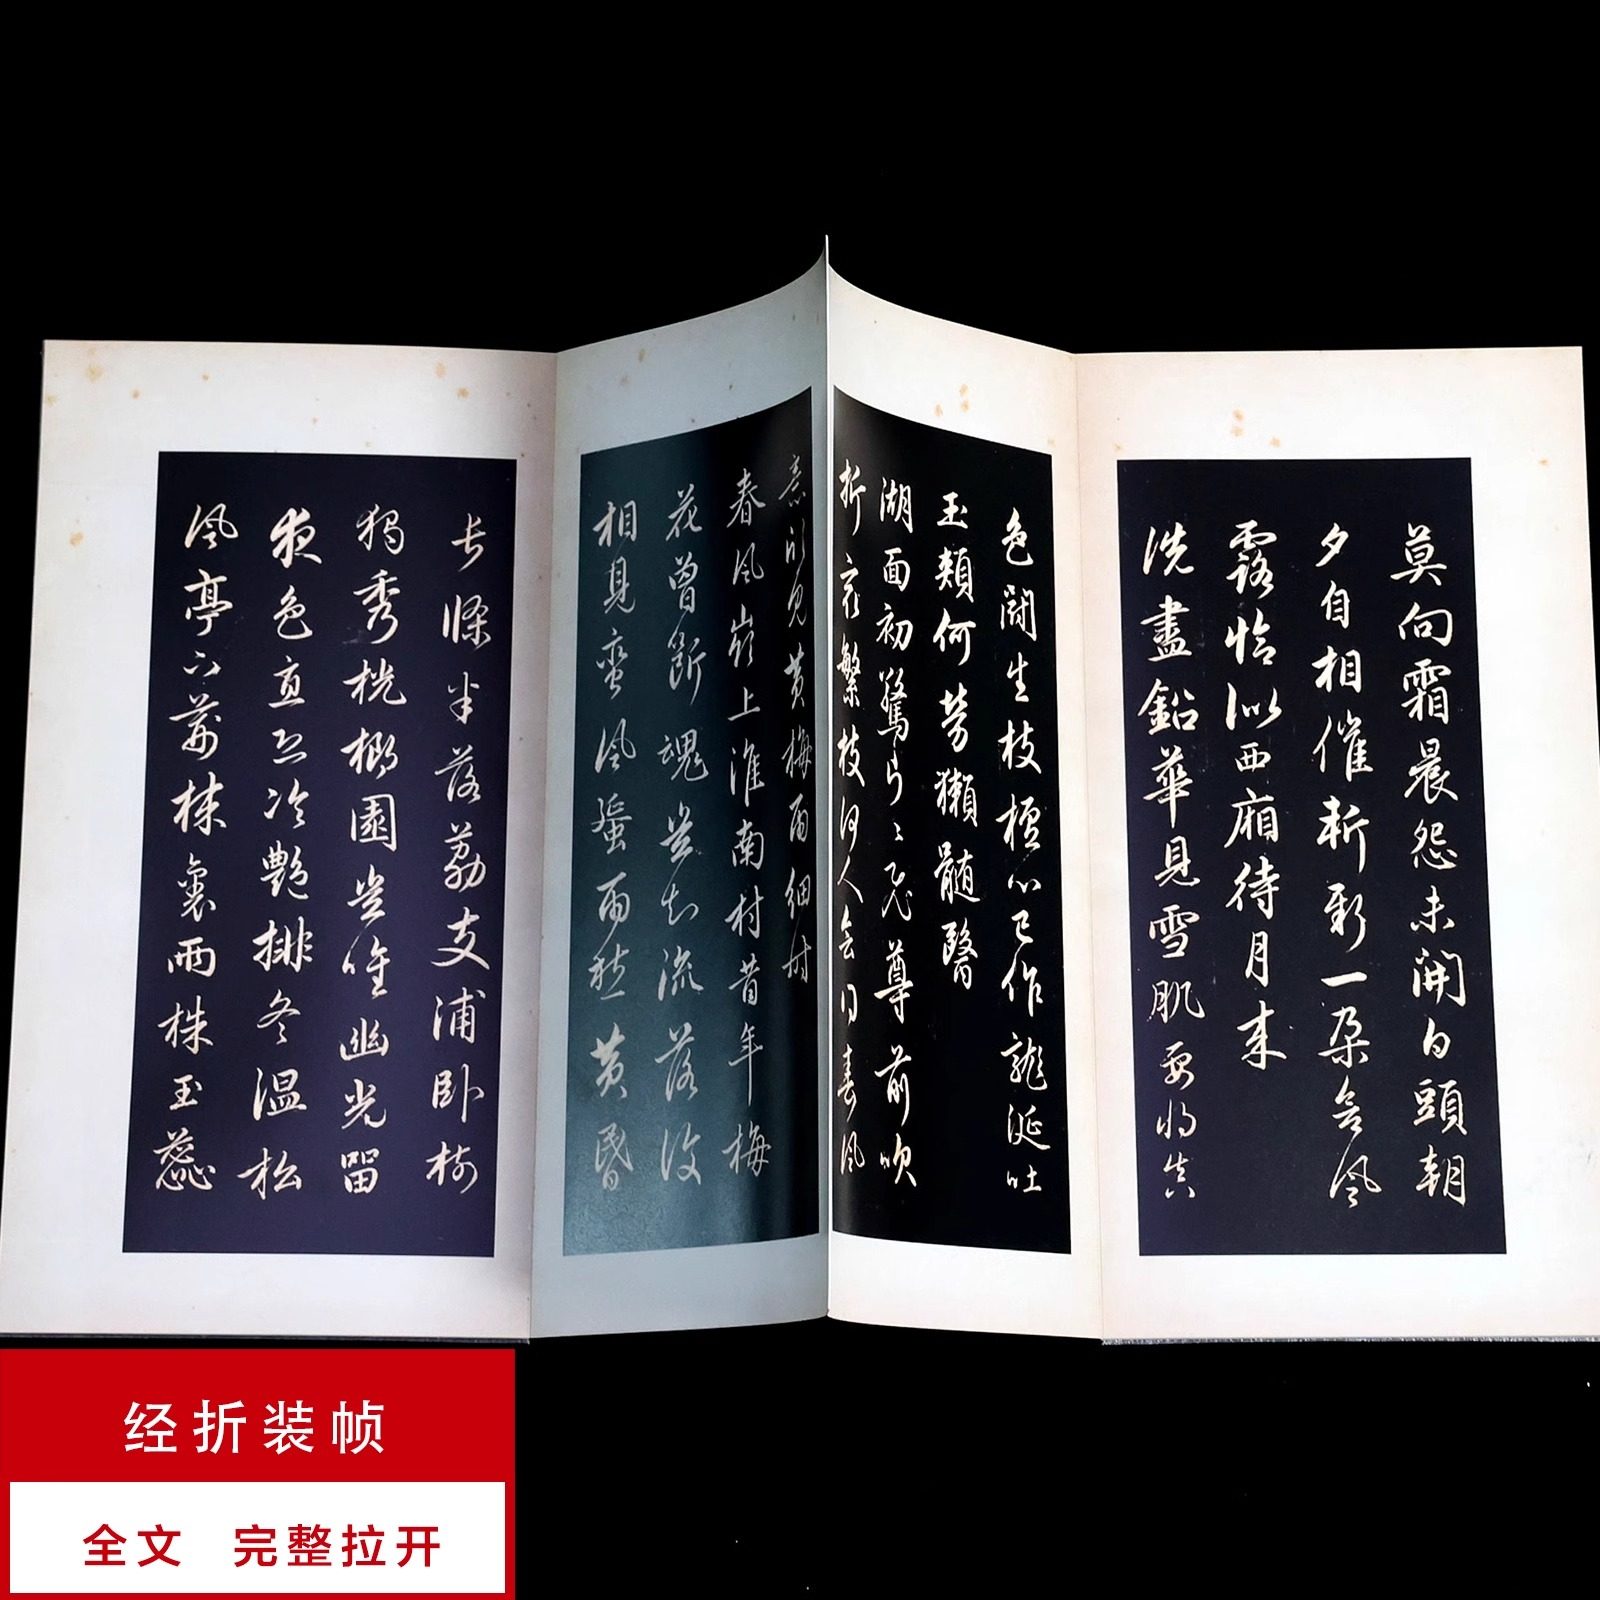 莫向霜晨怨未開白頭朝
夕自相催斬新一朵含風
露恰似西廂待月來
洗盡鉛華見雪肌要將真
色鬪生枝檀心已作龍涎吐
玉頰何勞獺髓醫
湖面初驚片片飛尊前吹
折最繁枝何人會得春風
意怕見黄梅雨細時
春風嶺上淮南村昔年梅
花曾斷魂豈知流落復
相見蠻風蜑雨愁黄昏
長條半落荔支浦卧樹
獨秀桄榔園豈惟幽光留
夜色直恐冷艷排冬温松
風亭下荆棘裏兩株玉蕊
经折装帧
全文 完整拉开